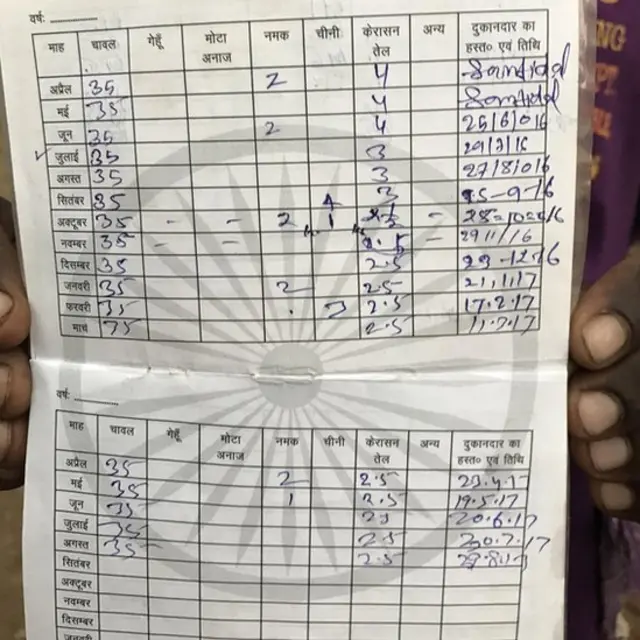 वर्षः
माह चावल गेहूँ मोटा अनाज नमक चीनी केरासन तेल अन्य दुकानदार का हस्त० एवं तिथि
अप्रैल 35 2 4
मई 35 4
जून 35 2 4 25/6/016
जुलाई 35 3
अगस्त 35 3 27/8/016
सितंबर 35 3 25-9-16
अक्टूबर 35 - - 2 1 -
नवम्बर 35 - - 2.5 - 2911/16
दिसम्बर 35 2.5 29-12-16
जनवरी 35 2 2.5 21/1/17
फरवरी 35 2.5 17.2.17
मार्च 35 2.5
वर्षः
माह चावल गेहूँ मोटा अनाज नमक चीनी केरासन तेल अन्य दुकानदार का हस्त० एवं तिथि
अप्रैल 35 2 2.5 23.4.17
मई 35 1 2.5 19.5.17
जून 35 20.6.17
जुलाई 35 2.5 20.7.17
अगस्त 35 2.5
सितंबर
अक्टूबर
नवम्बर
दिसम्बर
जनवरी